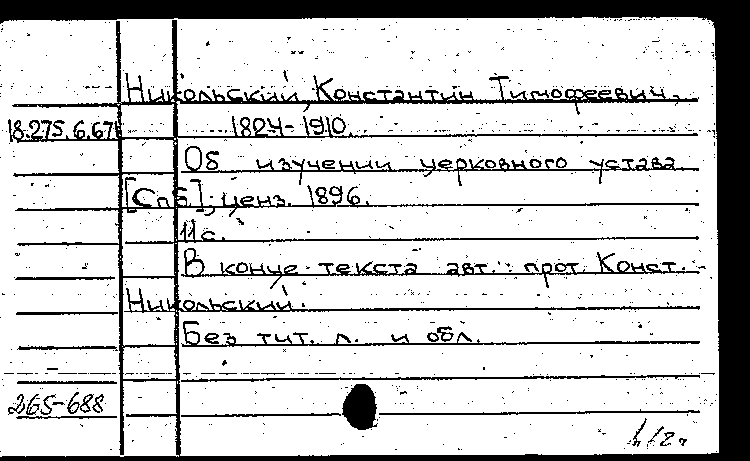 Никольский, Константин Тимофеевич,
18.275.6.671 1824-1910.
Об изучении церковного устава
[Спб], ценз. 1896.
11 с.
В конце текста авт.: прот. Конст.
Никольский.
Без тит. л. и обл.
265-688